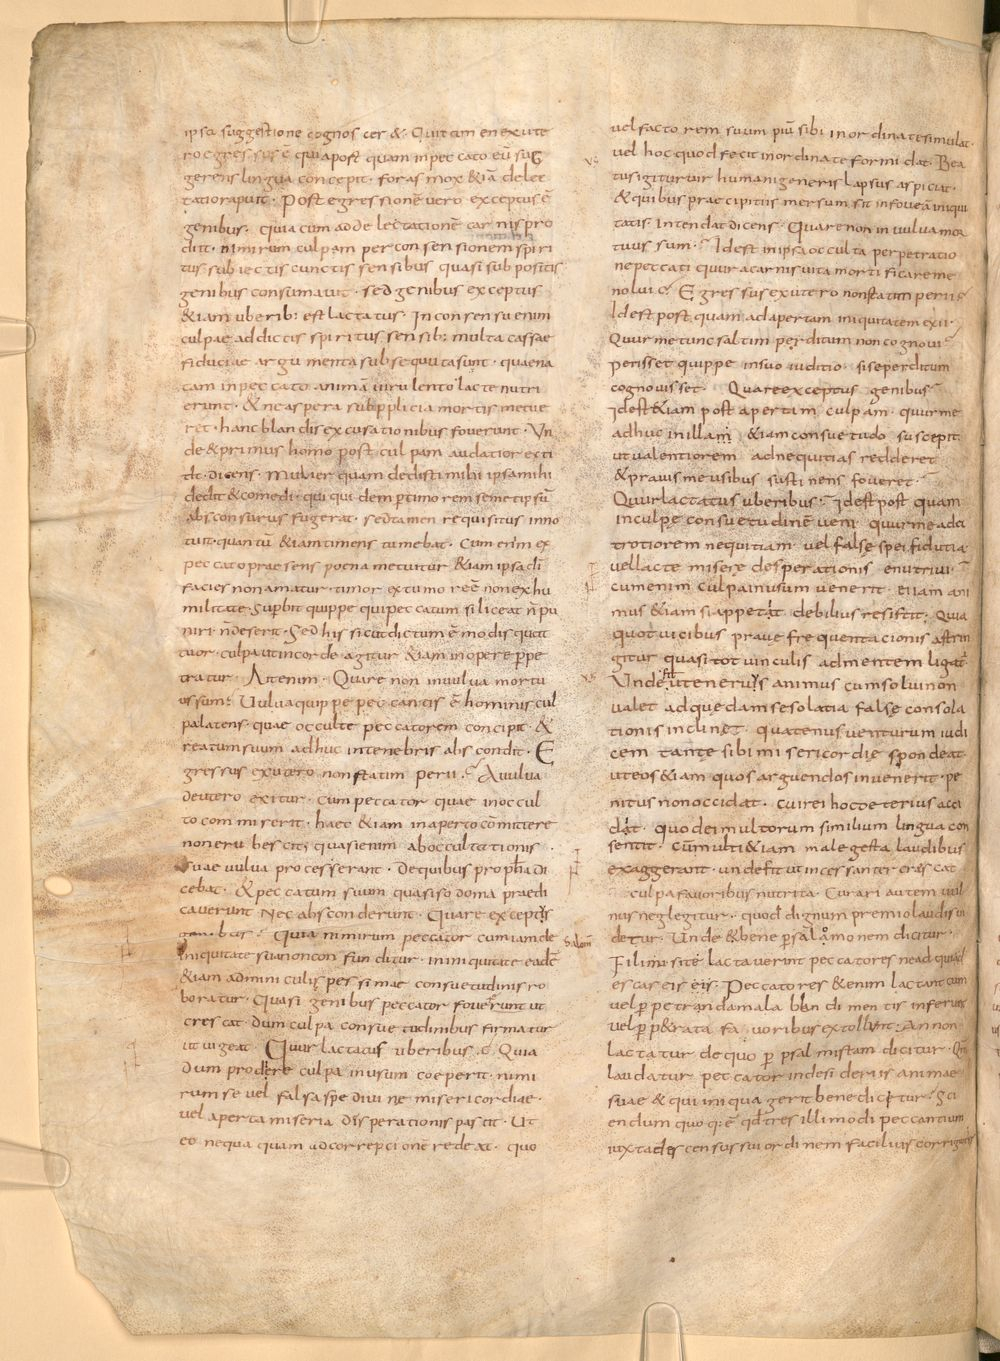 ipsa suggestione cognoscer&. Qui tam en ex ute
ro egressus ē quia post quam in peccato eū sug
gerens lingua concepit. foras mox &iā delec
tatio rapuit. Post egressionē uero exceptus ē
genibus. quia cum ad delectationē carnis pro
diit. nimirum culpam per consensionem spiri
tus subiectis cunctis sensibus quasi sub positis
genibus consumauit. sed genibus exceptus
&iam uberib; est lactatus. In consensu enim
culpae addictis spiritus sensib; multa cassae
fiduciae argumenta subsequuta sunt. quae na
tam in peccato animā uirulento lacte nutri
erunt. & ne aspera supplicia mortis metue
ret. hanc blandis excusationibus fouerunt. Un
de & primus homo post culpam audatior exti
tit. dicens. Mulier quam dedisti mihi ipsa mihi
dedit & comedi. qui quidem ptimorem semetipsū
absconsurus fugerat. sed tamen requisitus inno
tuit. quantū &iam timens tumebat. Cum enim ex
peccato praesens poena metuitur &iam ipsa di
facies non amatur. timor ex tumore ē non ex hu
militate. Supbit quippe qui peccatum si liceat ñ pu
niri ñ deserit. Sed his sicut dictum ē modis quat
tuor. culpa ut in corde agitur &iam in opere ppe
tratur. Ait enim. Quare non in uulua mortu
us sum. Uulua quippe peccantis ē hominis cul
pa latens. quae occulte peccatorem concipit. &
reatum suum adhuc in tenebris abscondit. E
gressus ex utero non statim perii. A uulua
de utero exitur. cum peccator quae in occul
to commiserit. haec &iam in aperto cōmittere
non erubescit. quasi enim ab occultationis
suae uulua processerant. de quibus prophā di
cebat. & peccatum suum quasi sodoma praedi
cauerunt nec absconderunt. Quare exceptus
genibus. Quia nimirum peccator cum iam de
iniquitate sua non confunditur. in iniquitate eadē
&iam adminiculis pessimae consuetudinis ro
boratur. Quasi genibus peccator fouerunt ut
crescat. dum culpa consuetudinibus firmatur
ut uigeat. Quur lactatus uberibus. Quia
dum prodere culpa in usum coeperit. nimi
rum se uel falsa spe diuine misericordiae.
uel aperta miseria disperationis pascit. Ut
eo nequaquam ad correpcionē redeat. quo
uel factorem suum piū sibi inordinate simulat.
uel hoc quod fecit inordinate formidat. Bea
tus igitur uir humani generis lapsus aspiciat.
& quibus praecipitiis mersum sit in foueā iniqui
tatis. Intendat dicens. Quare non in uulua mor
tuus sum. Idest in ipsa occulta perpetratio
ne peccati quur a carnis uita mortificare me
nolui. Egressus ex utero non statim perii
Idest post quam ad apertam iniquitatem exii.
Quur me tunc saltim perditum non cognoui.
Perisset quippe in suo iuditio si se perditum
cognouisset. Quare exceptus genibus
Idest &iam post apertam culpam. quur me
adhuc in illam &iam consuetudo suscepit
ut ualentiorem ad nequitias redderet
& prauis me usibus sustinens foueret.
Quur lactatus uberibus. Idest post quam
in culpe consuetudinē ueni quur me ad a
trotiorem nequitiam. uel false spei fidutia
uel lacte misere desperationis enutriui.
Cum enim culpa in usum uenerit. etiam ani
mus &iam si appetat debilius resistit. Quia
quot uicibus praue frequentacionis astrin
gitur quasi tot uinculis ad mentem ligat
Unde fit ut eneruis animus cum solui non
ualet ad quędam se solatia false consola
tionis inclinet. quatenus uenturum iudi
cem tantę sibi misericordie spondeat
ut eos &iam quos arguendos inuenerit. pe
nitus non occidat. cui rei hoc deterius acci
dit. quod ei multorum similium lingua con
sentit. cum multi &iam male gesta laudibus
exaggerant. unde fit ut incessanter crescat
culpa fauoribus nutrita. Curari autem uul
nus neglegitur. quod dignum premio laudis ui
detur. Unde & bene p salamonem dicitur.
Salom
Fili mi si te lactauerint peccatores ne adquies
cas eis. Peccatores &enim lactant cum
uel p petranda mala blandimentis inferunt
uel p petrata fauoribus extollunt. An non
lactatur de quo p psalmistam dicitur. Qm
laudatur peccator in desideriis animae
suae & qui iniqua gerit benedicitur. Sci
endum quoq: ē qd tres illi modi peccantium
iuxta descensus sui ordinem facilius corrigunt